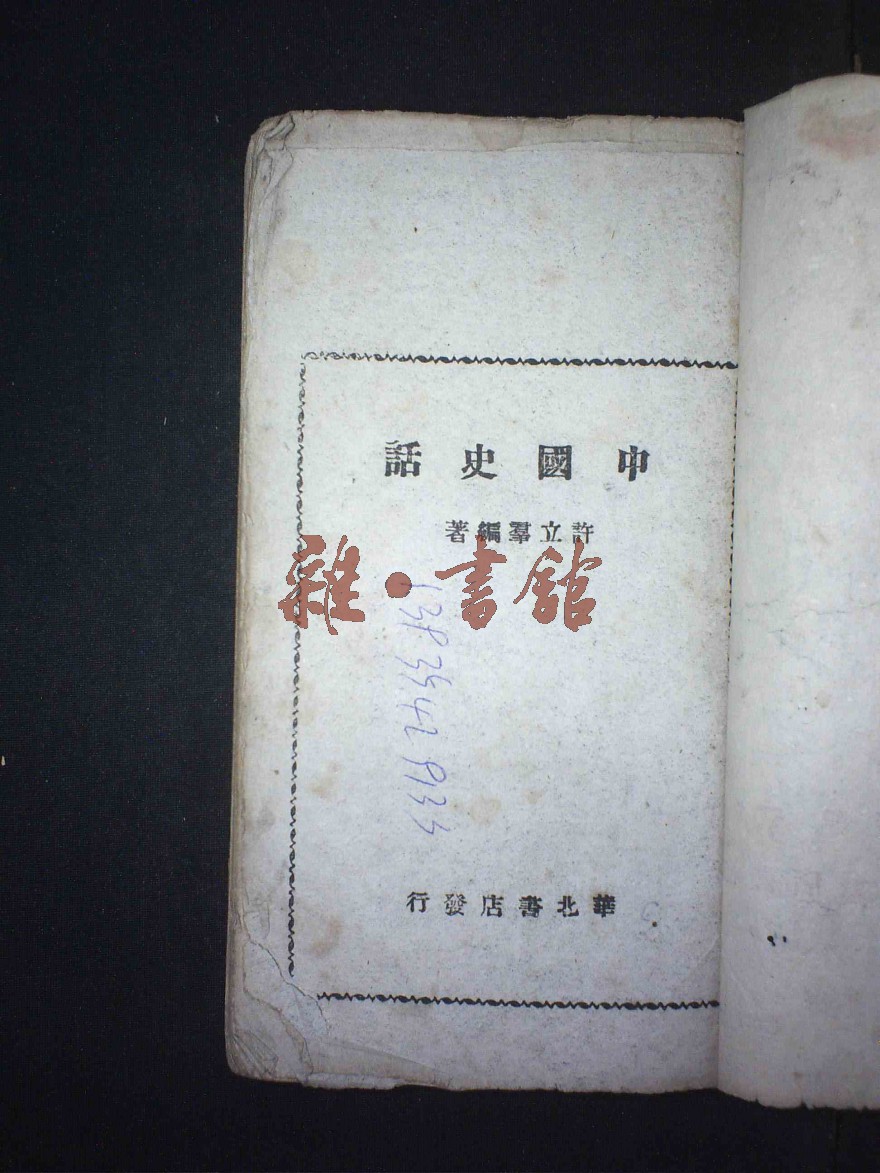 話史國中
著編羣立許
雜·書館
行發店書北華